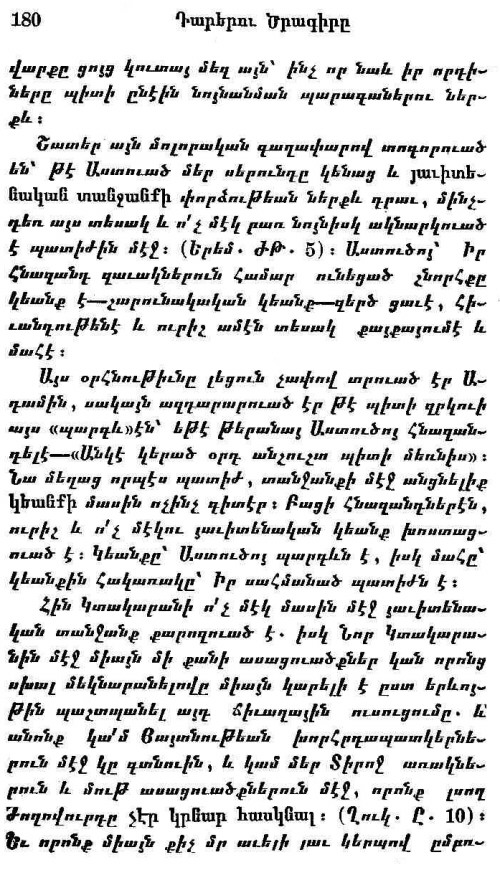 180 Դարերու Ծրագիրը
վարքը ցոյց կուտայ մեզ այն՝ ինչ որ նաև իր որդի-
ները պիտի ընէին նոյնանման պարագաներու ներ-
քև ։
Շատեր այն մոլորական գաղափարով տոգորուած
են՝ թէ Աստուած մեր սերունդը կենաց և յաւիտե-
նական տանջանքի փորձութեան ներքև դրաւ, մինչ-
դեռ այս տեսակ և ո՛չ մէկ բառ նոյնիսկ ակնարկուած
է պատիժին մէջ ։ (Երեմ. ԺԹ. 5) ։ Աստուծոյ՝ Իր
Հնազանդ զաւակներուն Համար ունեցած շնորհքը
կեանք է—շարունակական կեանք—զերծ ցաւէ, Հի-
ւանդութենէ և ուրիշ ամէն տեսակ քայքայումէ և
մահէ ։
Այս օրհնութիւնը լեցուն չափով տրուած էր Ա-
դամին, սակայն ազդարարուած էր թէ պիտի զրկուի
այս «պարգև»էն՝ եթէ թերանայ Աստուծոյ Հնազան-
դելէ—«Անկէ կերած օրդ անշուշտ պիտի մեռնիս» ։
Նա մեղաց որպէս պատիժ, տանջանքի մէջ անցնելիք
կեանքի մասին ոչինչ գիտէր ։ Բացի Հնազանդներէն,
ուրիշ և ո՛չ մէկու յաւիտենական կեանք խոստաց-
ուած է ։ Կեանքը՝ Աստուծոյ պարգևն է, իսկ մահը՝
կեանքին Հակառակը՝ Իր սահմանած պատիժն է ։
Հին Կտակարանի ո՛չ մէկ մասին մէջ յաւիտենա-
կան տանջանք քարոզուած է. իսկ Նոր Կտակարա-
նին մէջ միայն մի քանի ասացուածքներ կան որոնց
սխալ մեկնաբանելովը միայն կարելի է ըստ երևոյ-
թին պաշտպանել այդ ճիւաղային ուսուցումը. և՝
անոնք կա՛մ Յայտնութեան խորհրդապատկերնե-
րուն մէջ կը գտնուին, և կամ մեր Տիրոջ առակնե-
րուն և մութ ասացուածքներուն մէջ, որոնք լսող
Ժողովուրդը չէր կրնար հասկնալ ։ (Ղուկ. Ը. 10) ։
Եւ որոնք միայն քիչ մը աւելի լաւ կերպով ըմբռ-